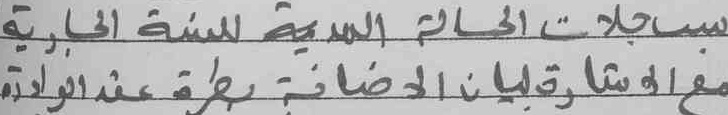 بسجلات الحالة المدنية للسنة الجارية
مع الاشارة لبيان الاضافة بطرة عقد الولادة